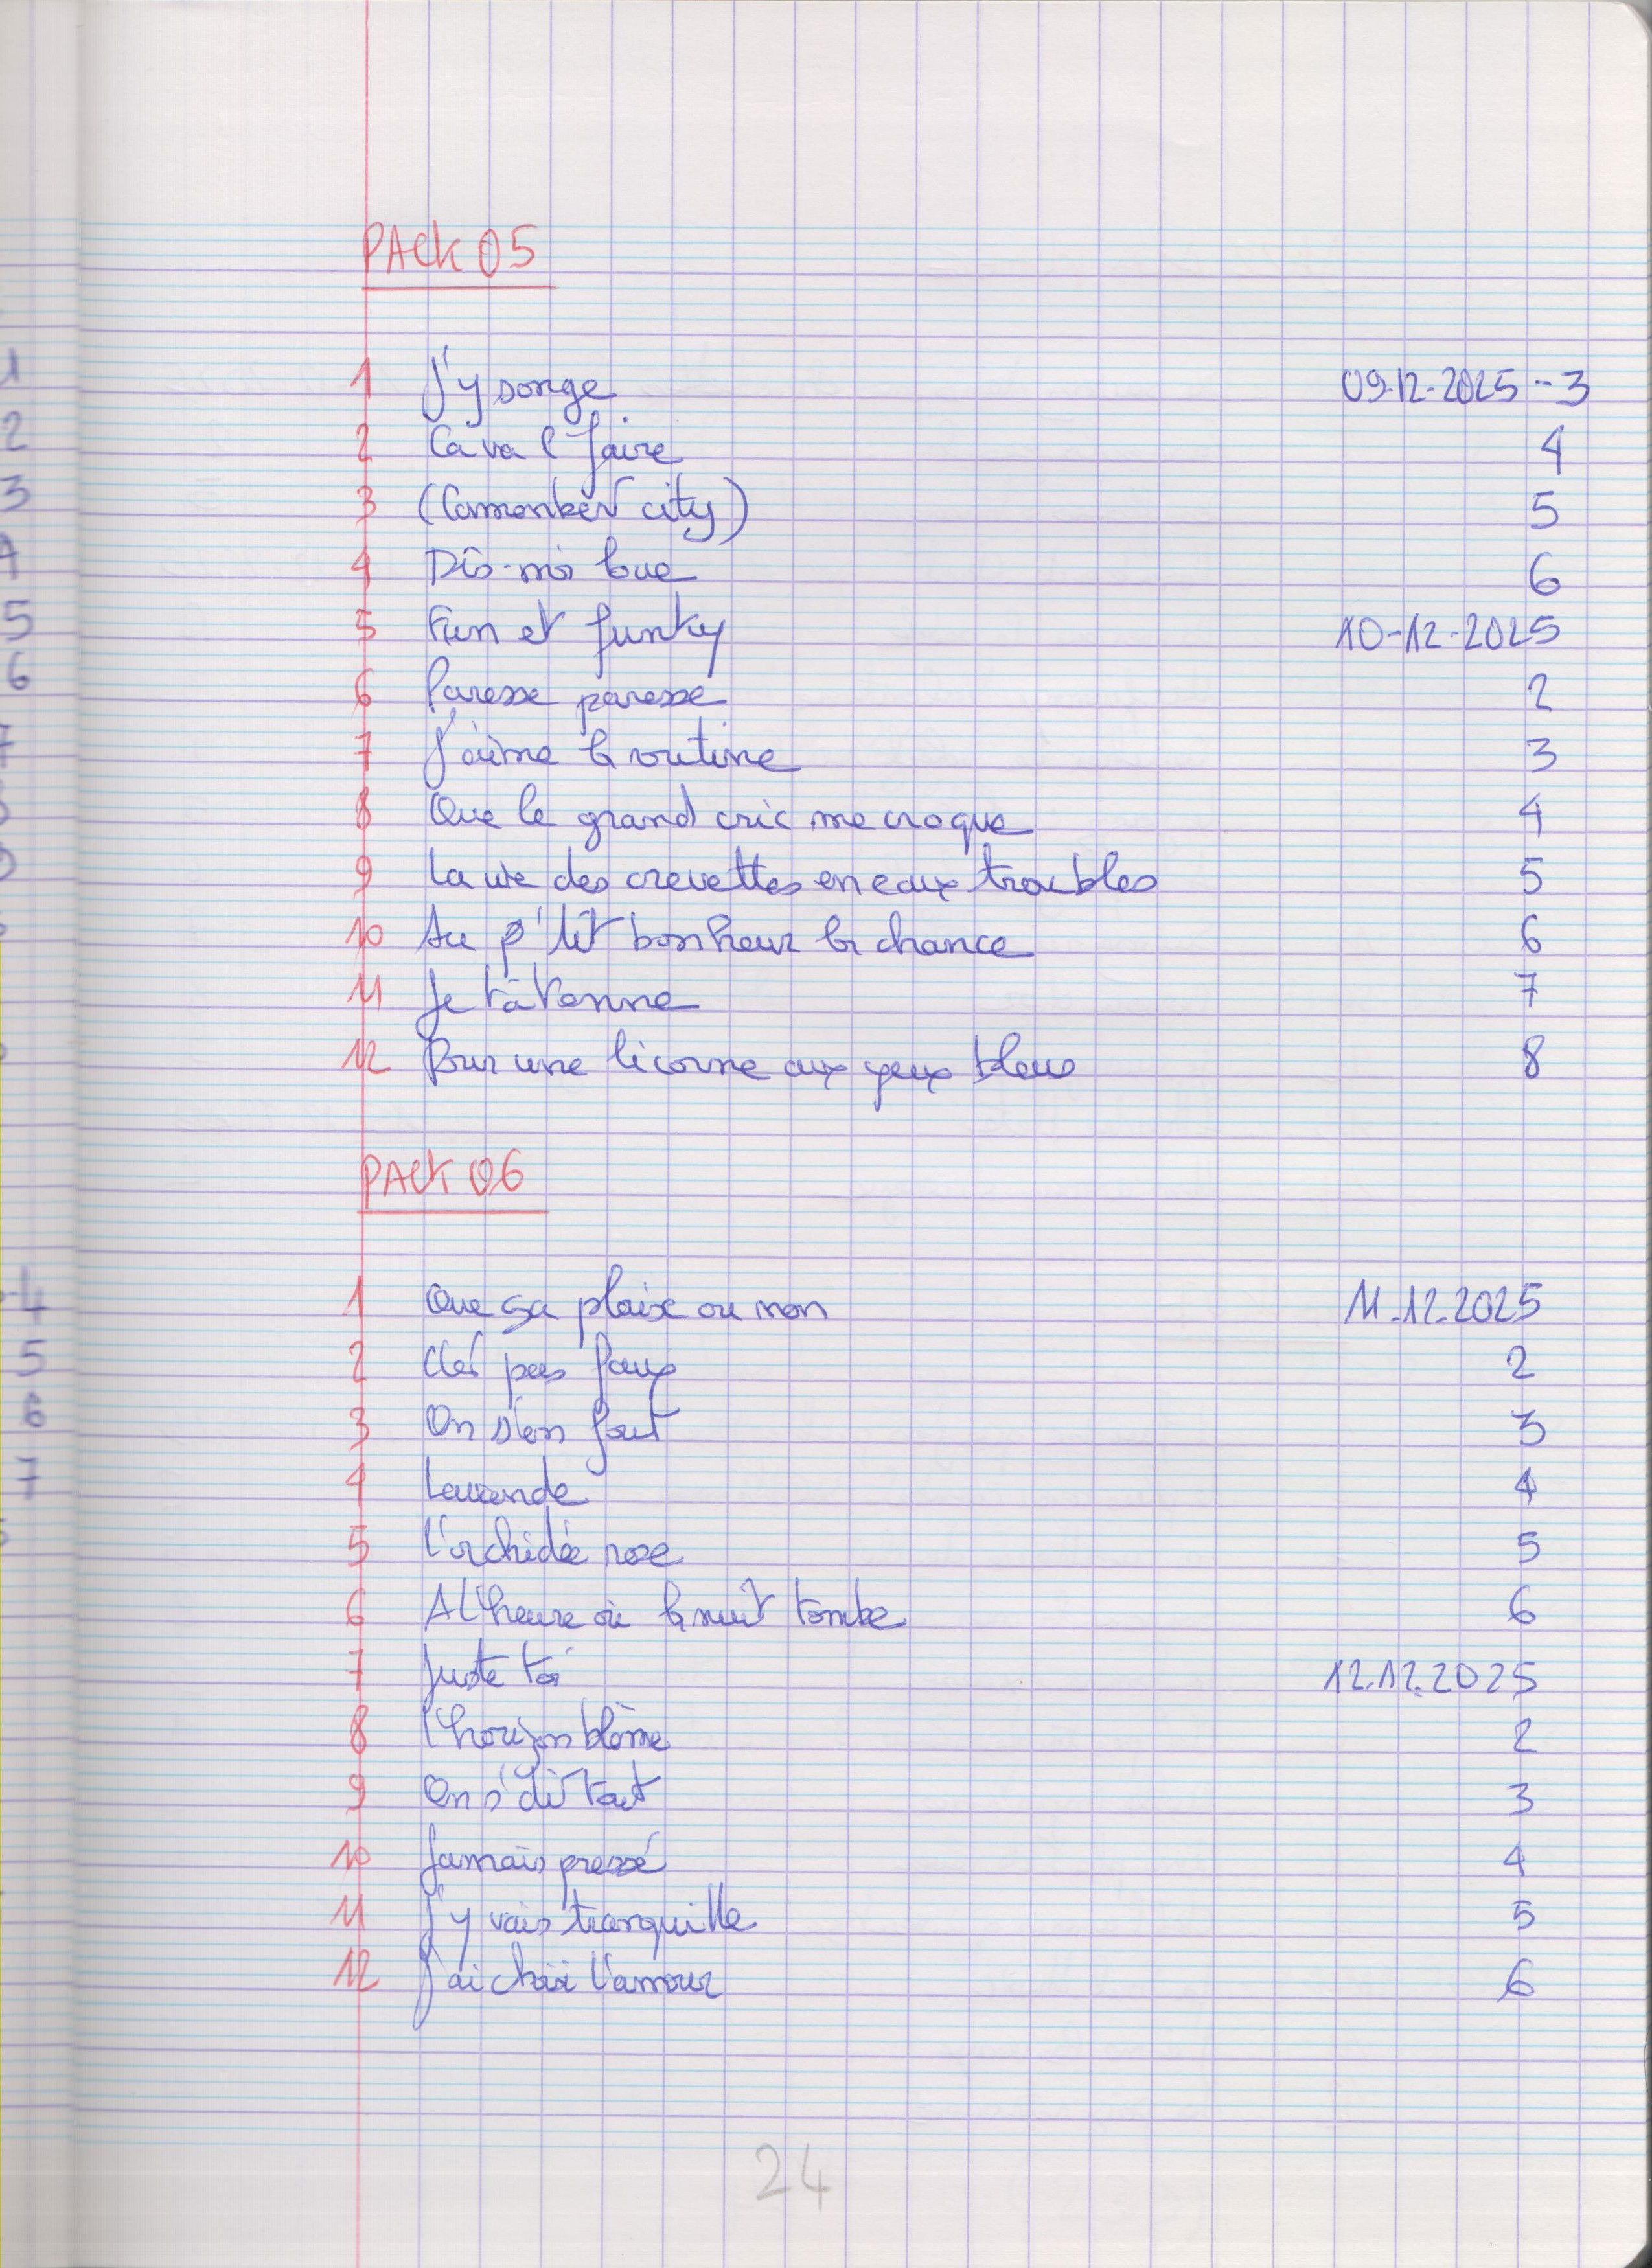 PACK 05
1 J'y songe 09-12-2025 - 3
2 Ca va l'faire 4
3 (Camenbert city) 5
4 Dis-moi love 6
5 Fun et funky 10-12-2025
6 Paresse paresse 2
7 J'aime la routine 3
8 Que le grand cric me croque 4
9 La vie des crevettes en eaux troubles 5
10 Au p'tit bonheur la chance 6
11 Je tâtonne 7
12 Pour une licorne aux yeux bleus 8
PACK 06
1 Que sa plaise ou non 11.12.2025
2 pas faux 2
3 On s'en fout 3
4 Lavande 4
5 L'orchidée rose 5
6 A L'heure où la nuit tombe 6
7 Juste toi 12.12.2025
8 L'horizon blême 2
9 On s'dit tout 3
10 Jamais pressé 4
11 J'y vais tranquille 5
12 J'ai choisi l'amour 6
24
1
2
3
4
5
6
7
4
5
6
7